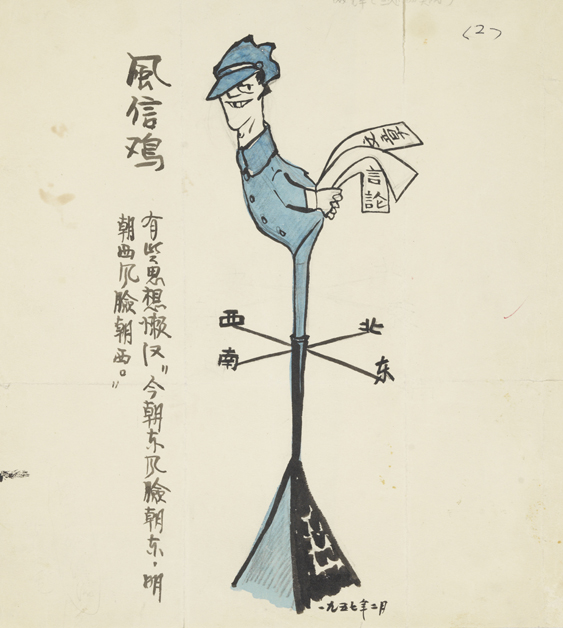 (2)
風信鸡
有些思想懒汉"今朝东风臉朝东,明
朝西风臉朝西。"
文章
言論
西
北
南
东
一九五七年二月